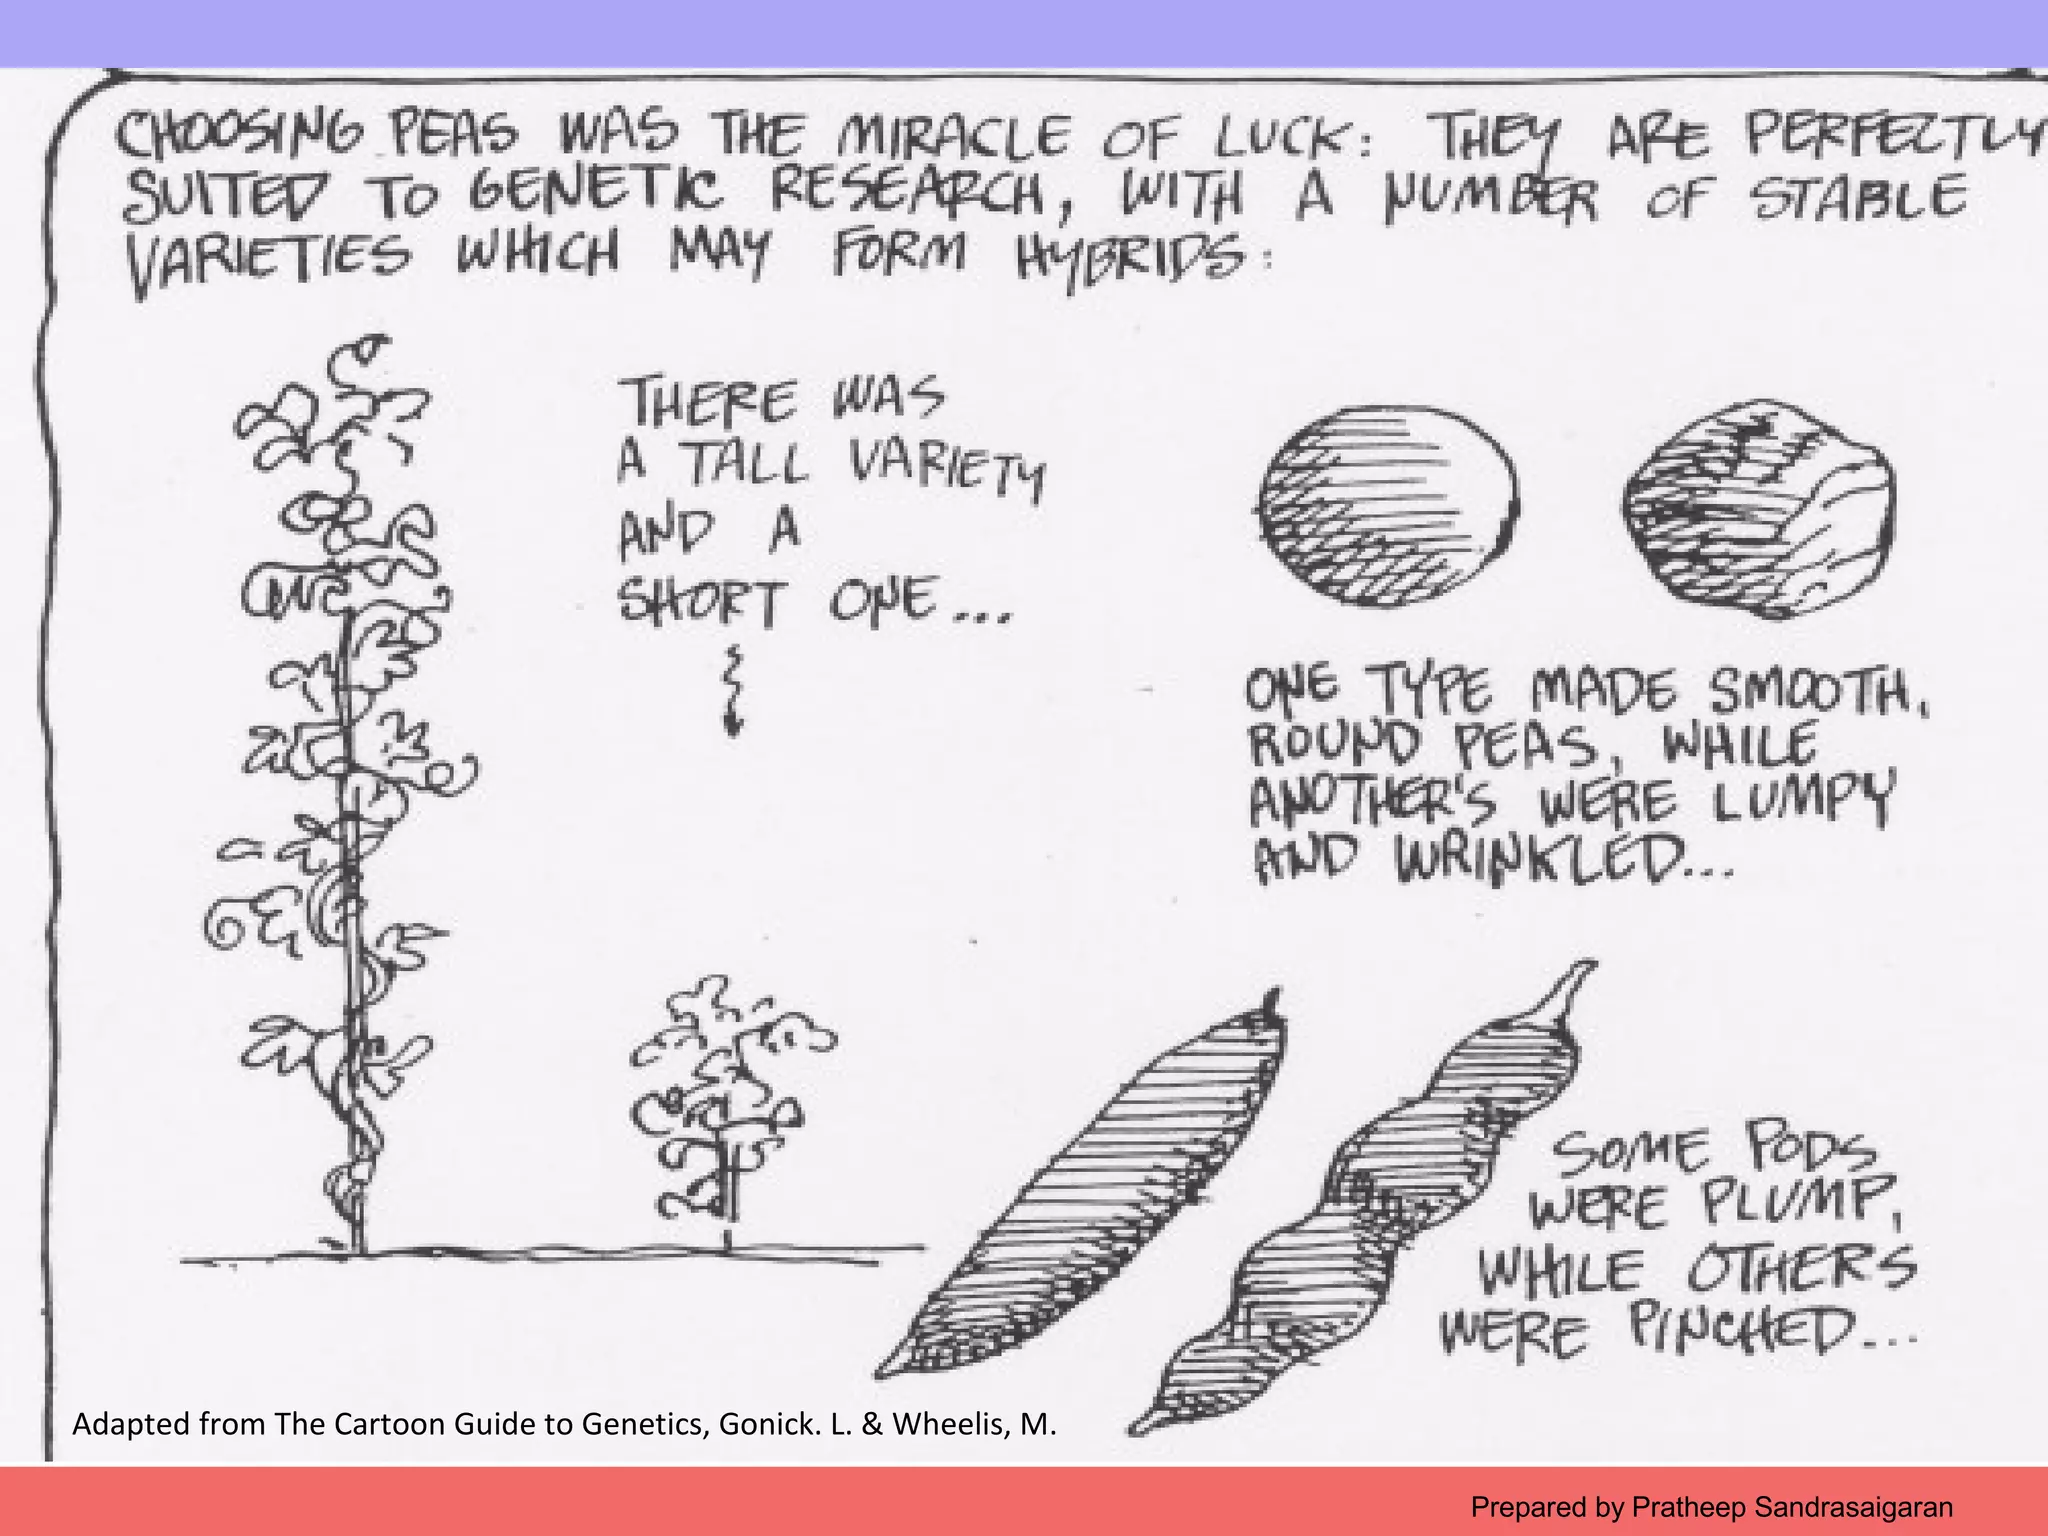 CHOOSING PEAS WAS THE MIRACLE OF LUCK: THEY ARE PERFECTLY
SUITED TO GENETIC RESEARCH, WITH A NUMBER OF STABLE
VARIETIES WHICH MAY FORM HYBRIDS:
THERE WAS
A TALL VARIETY
AND A
SHORT ONE...
ONE TYPE MADE SMOOTH,
ROUND PEAS, WHILE
ANOTHER'S WERE LUMPY
AND WRINKLED...
SOME PODS
WERE PLUMP,
WHILE OTHERS
WERE PINCHED...
Adapted from The Cartoon Guide to Genetics, Gonick. L. & Wheelis, M.
Prepared by Pratheep Sandrasaigaran